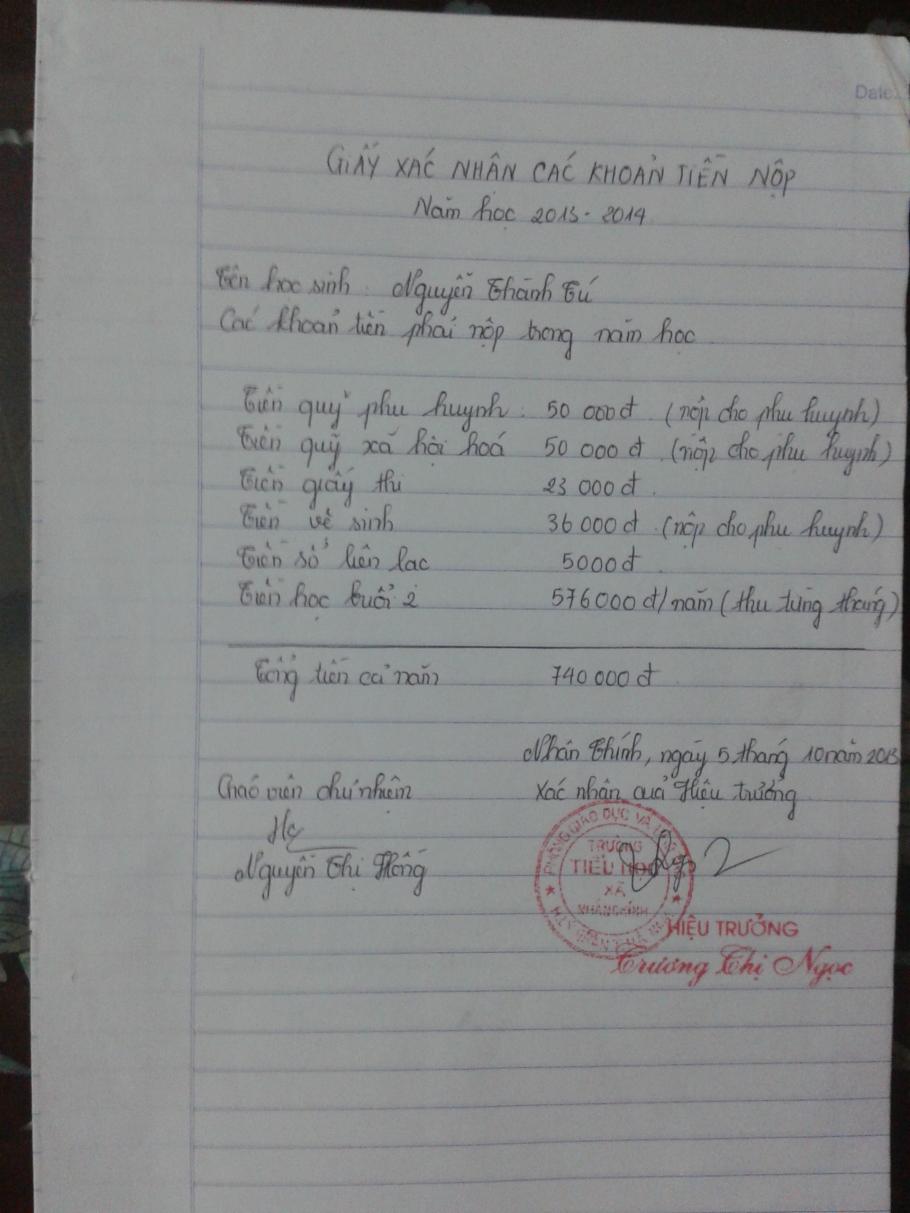 Date:
GIẤY XÁC NHẬN CÁC KHOẢN TIỀN NỘP
Năm học 2013 - 2014
Tên học sinh : Nguyễn Thành Tú
Các khoản tiền phải nộp trong năm học
Tiền quỹ phụ huynh : 50 000đ (nộp cho phụ huynh)
Tiền quỹ xã hội hoá 50 000 đ (nộp cho phụ huynh)
Tiền giấy thi 23 000 đ
Tiền vệ sinh 36 000 đ (nộp cho phụ huynh)
Tiền sổ liên lạc 5000 đ
Tiền học buổi 2 576 000 đ/năm (thu từng tháng)
Tổng tiền cả năm 740 000 đ
Nhân Chính, ngày 5 tháng 10 năm 2013
Giáo viên chủ nhiệm Xác nhận của Hiệu trưởng
Nguyễn Thị Hồng
PHÒNG GIÁO DỤC VÀ
TRƯỜNG
TIỂU HỌC
XÃ
NHÂN CHÍNH
HIỆU TRƯỞNG
Trương Thị Ngọc